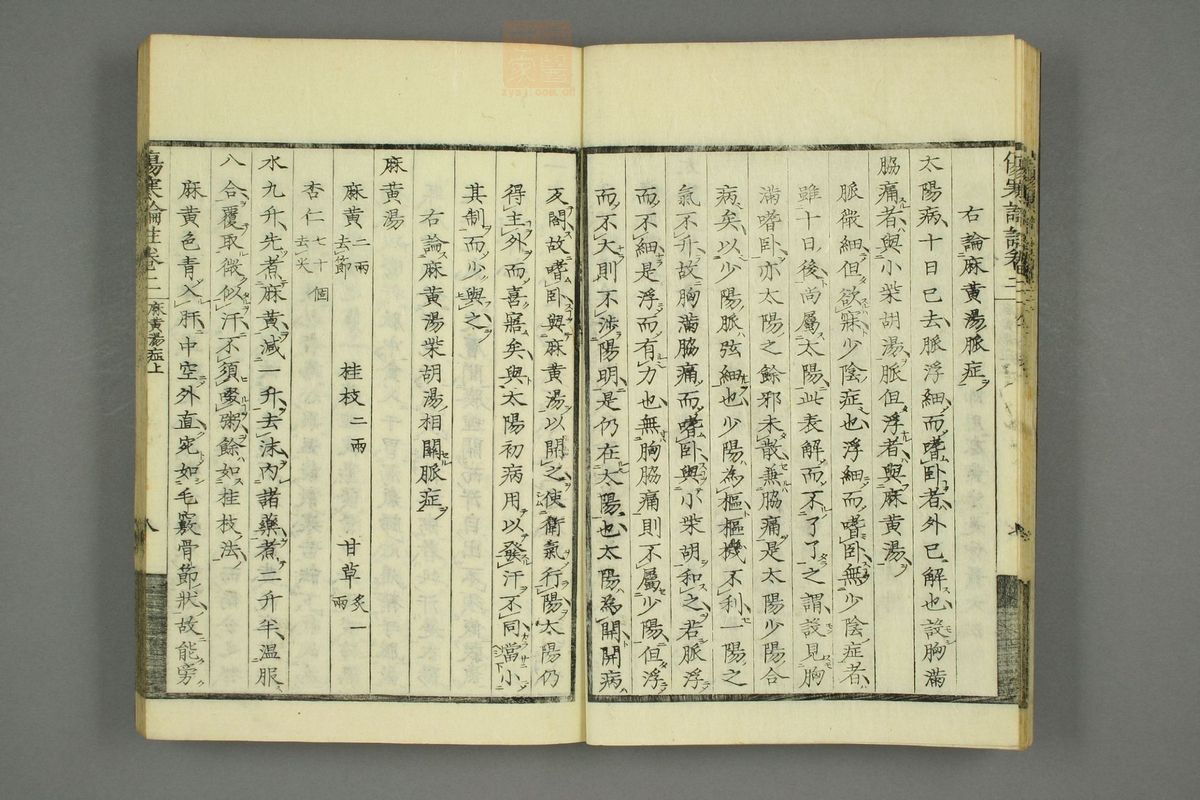 右論麻黃湯脈症
太陽病十日已去脈浮細而嗜臥者外已解也設胸滿
脇痛者與小柴胡湯脈但浮者與麻黃湯
脈微細但欲寐少陰症也浮細而嗜臥無少陰症者
雖十日後尚屬太陽此表解而不了了之謂設見胸
滿嗜臥亦太陽之餘邪未散兼脇痛是太陽少陽合
病矣以少陽脈弦細也少陽為樞樞機不利一陽之
氣不升故胸滿脇痛而嗜臥與小柴胡和之若脈浮
而不細是浮而有力也無胸脇痛則不屬少陽但浮
而不大則不涉陽明是仍在太陽也太陽為開開病
反闔故嗜臥與麻黃湯以開之使衛氣行陽太陽仍
得主外而喜寤矣與太陽初病用以發汗不同當小
其制而少與之
右論麻黃湯柴胡湯相關脈症
麻黃湯
麻黃二兩去節 桂枝二兩 甘草炙一兩
杏仁七十個去尖
水九升先煮麻黃減一升去沫內諸藥煮二升半溫服
八合覆取微似汗不須啜粥餘如桂枝法
麻黃色青入肝中空外直宛如毛竅骨節狀故能旁
傷寒論註卷二 麻黃湯症上 八